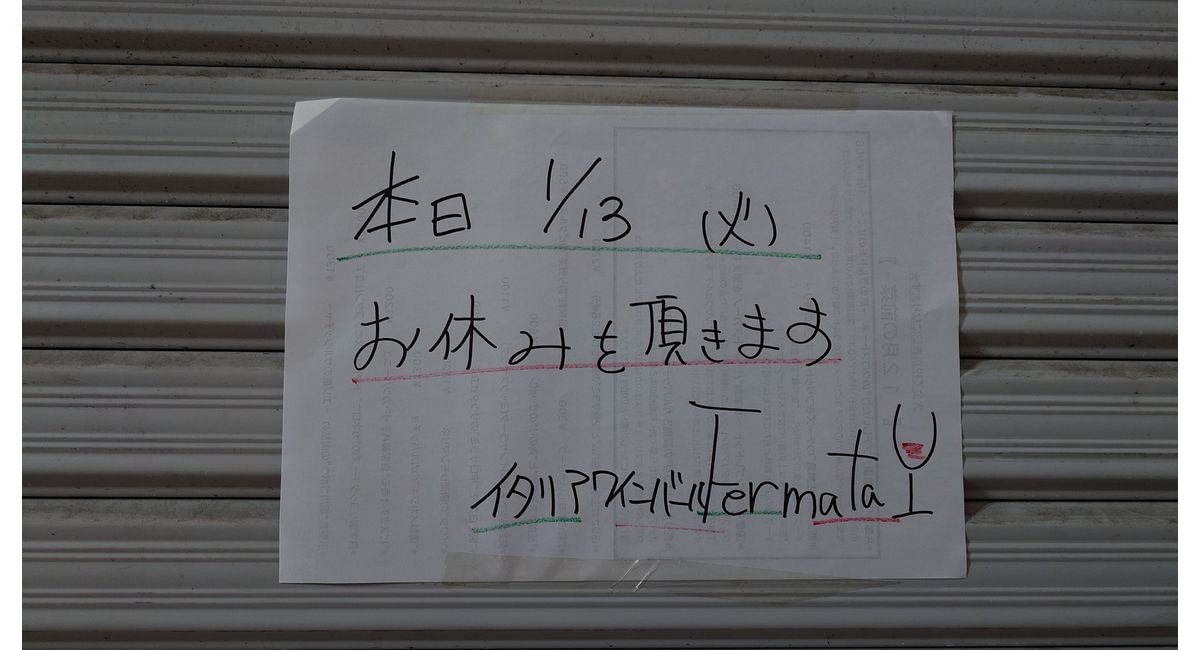 本日 1/13 (火)
お休みを頂きます
イタリアワインバール Fermata